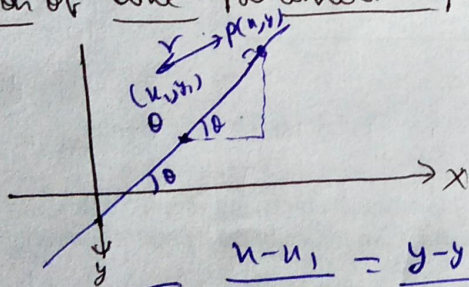 on of
r P(x,y)
(x₁,y₁)
θ
θ
θ
X
y
x-x₁ = y-y